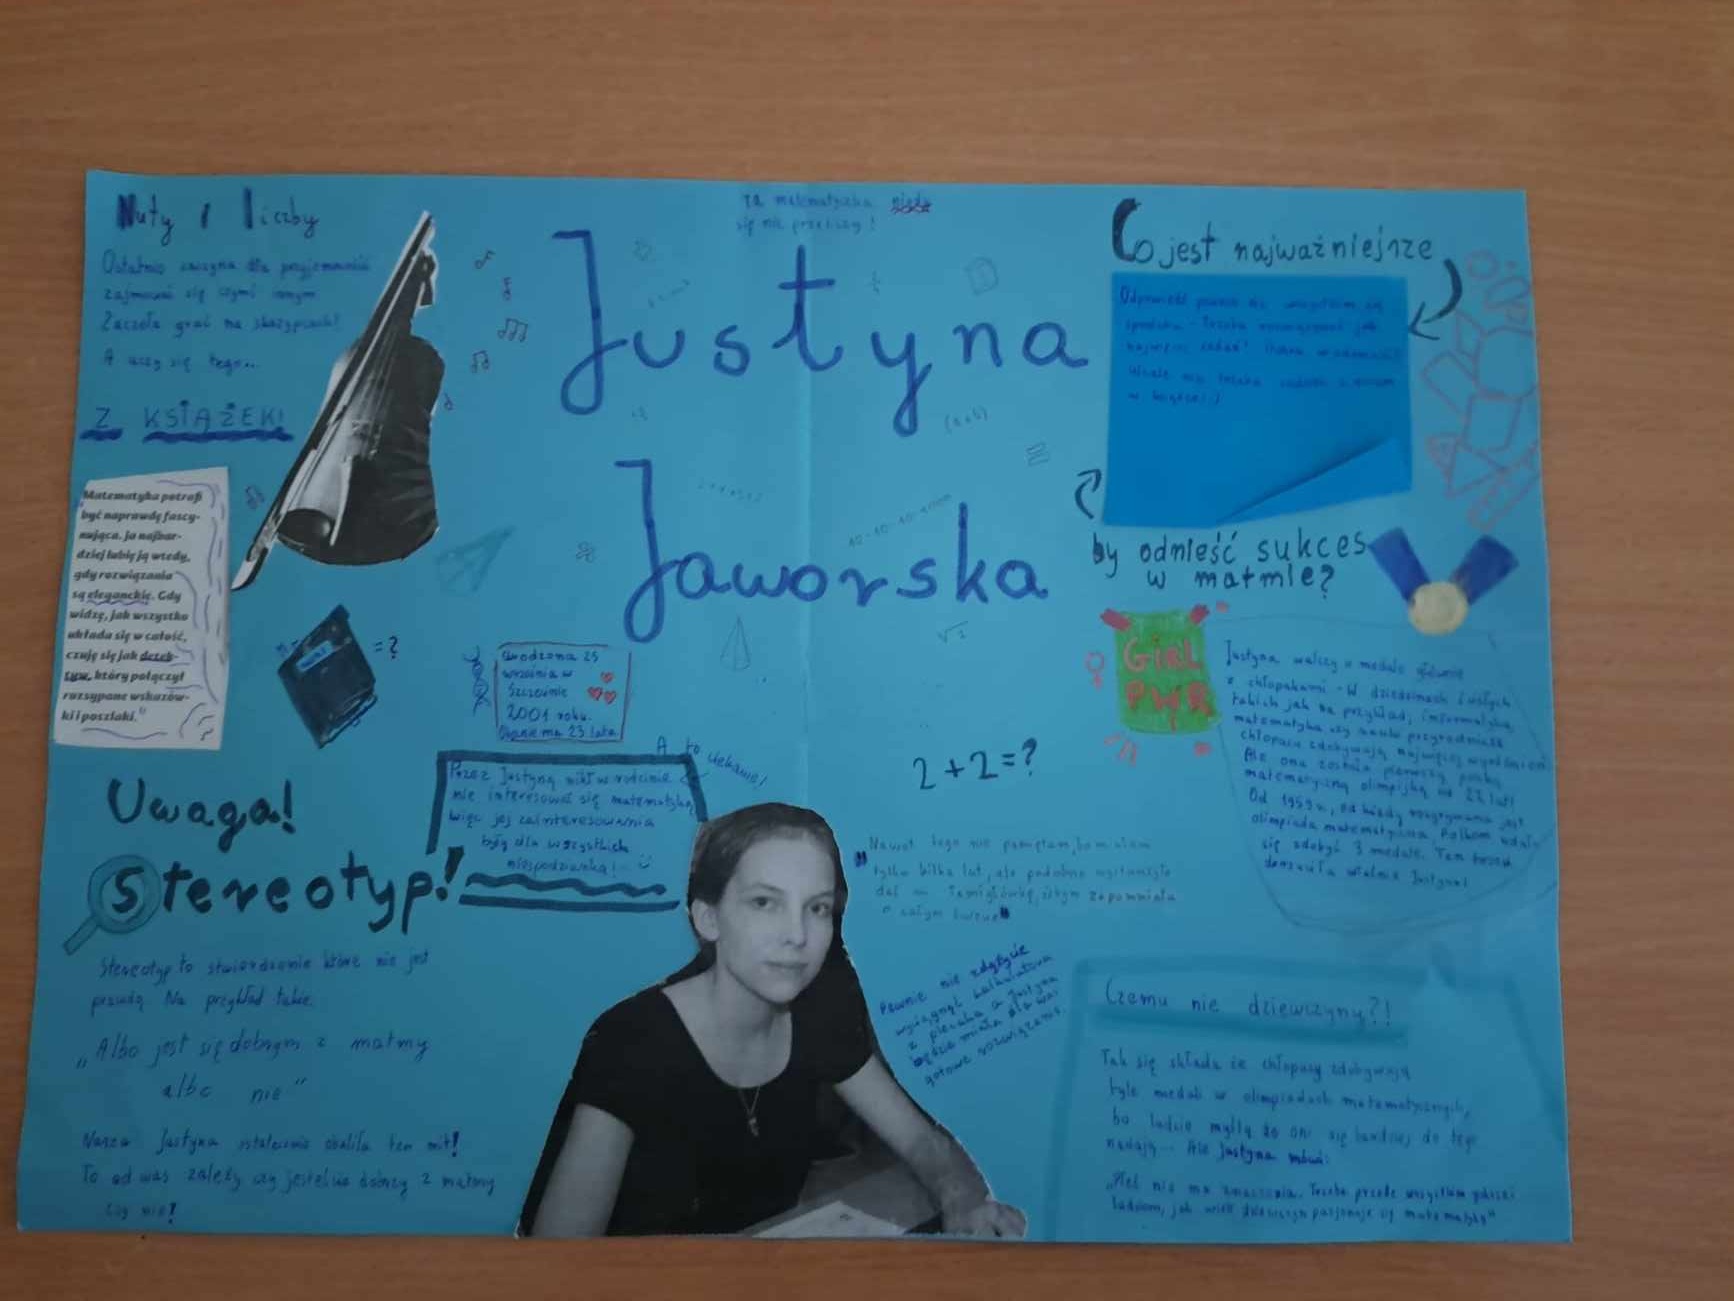 Nuty i liczby
Ostatnio zaczyna dla przyjemności
zajmować się czymś innym
Zaczęła grać na skrzypcach!
A uczy się tego...
Z KSIĄŻEK!
Matematyka potrafi
być naprawdę fascy-
nująca. Ja najbar-
dziej lubię ją wtedy,
gdy rozwiązania
są eleganckie. Gdy
widzę, jak wszystko
układa się w całość,
czuję się jak detek-
tyw, który połączył
rozsypane wskazów-
ki i poszlaki."
= ?
Ta matematyczka nigdy
się nie przeliczy!
Justyna
Jaworska
(a+b)
√2
Urodzona 25
września w
Szczecinie
2001 roku.
Obecnie ma 23 lata
A to ciekawe!
Przez Justyną nikt w rodzinie
nie interesował się matematyką
więc jej zainteresowania
były dla wszystkich
niespodzianką!
Uwaga!
Stereotyp!
Stereotyp to stwierdzenie które nie jest
prawdą. Na przykład takie:
„Albo jest się dobrym z matmy
albo nie"
Nasza Justyna ostatecznie obaliła ten mit!
To od was zależy czy jesteście dobrzy z matmy
czy nie!
2+2=?
Nawet tego nie pamiętam, bo miałam
tylko kilka lat, ale podobno wystarczyło
dać łamigłówkę, żebym zapomniała
o całym świecie"
Pewnie nie zdążycie
wyciągnąć kalkulatora
z plecaka a Justyna
będzie miała dla was
gotowe rozwiązanie.
Co jest najważniejsze
by odnieść sukces
w matmie?
GIRL
PWR
Justyna walczy o medale głównie
z chłopakami - W dziedzinach ścisłych
takich jak na przykład, informatyka,
matematyka czy nauki przyrodnicze
chłopacy zdobywają najwięcej wyróżnień
Ale ona została pierwszą polską
matematyczną olimpijką od 22 lat!
Od 1959 r., od kiedy rozgrywana jest
olimpiada matematyczna Polkom udało
się zdobyć 3 medale. Ten trzeci
dostała właśnie Justyna!
Czemu nie dziewczyny?!
Tak się składa że chłopacy zdobywają
tyle medali w olimpiadach matematycznych,
bo ludzie myślą że oni się bardziej do tego
nadają... Ale Justyna mówi:
„Płeć nie ma znaczenia. Trzeba przede wszystkim pokazać
ludziom, jak wiele dziewczyn pasjonuje się matematyką"